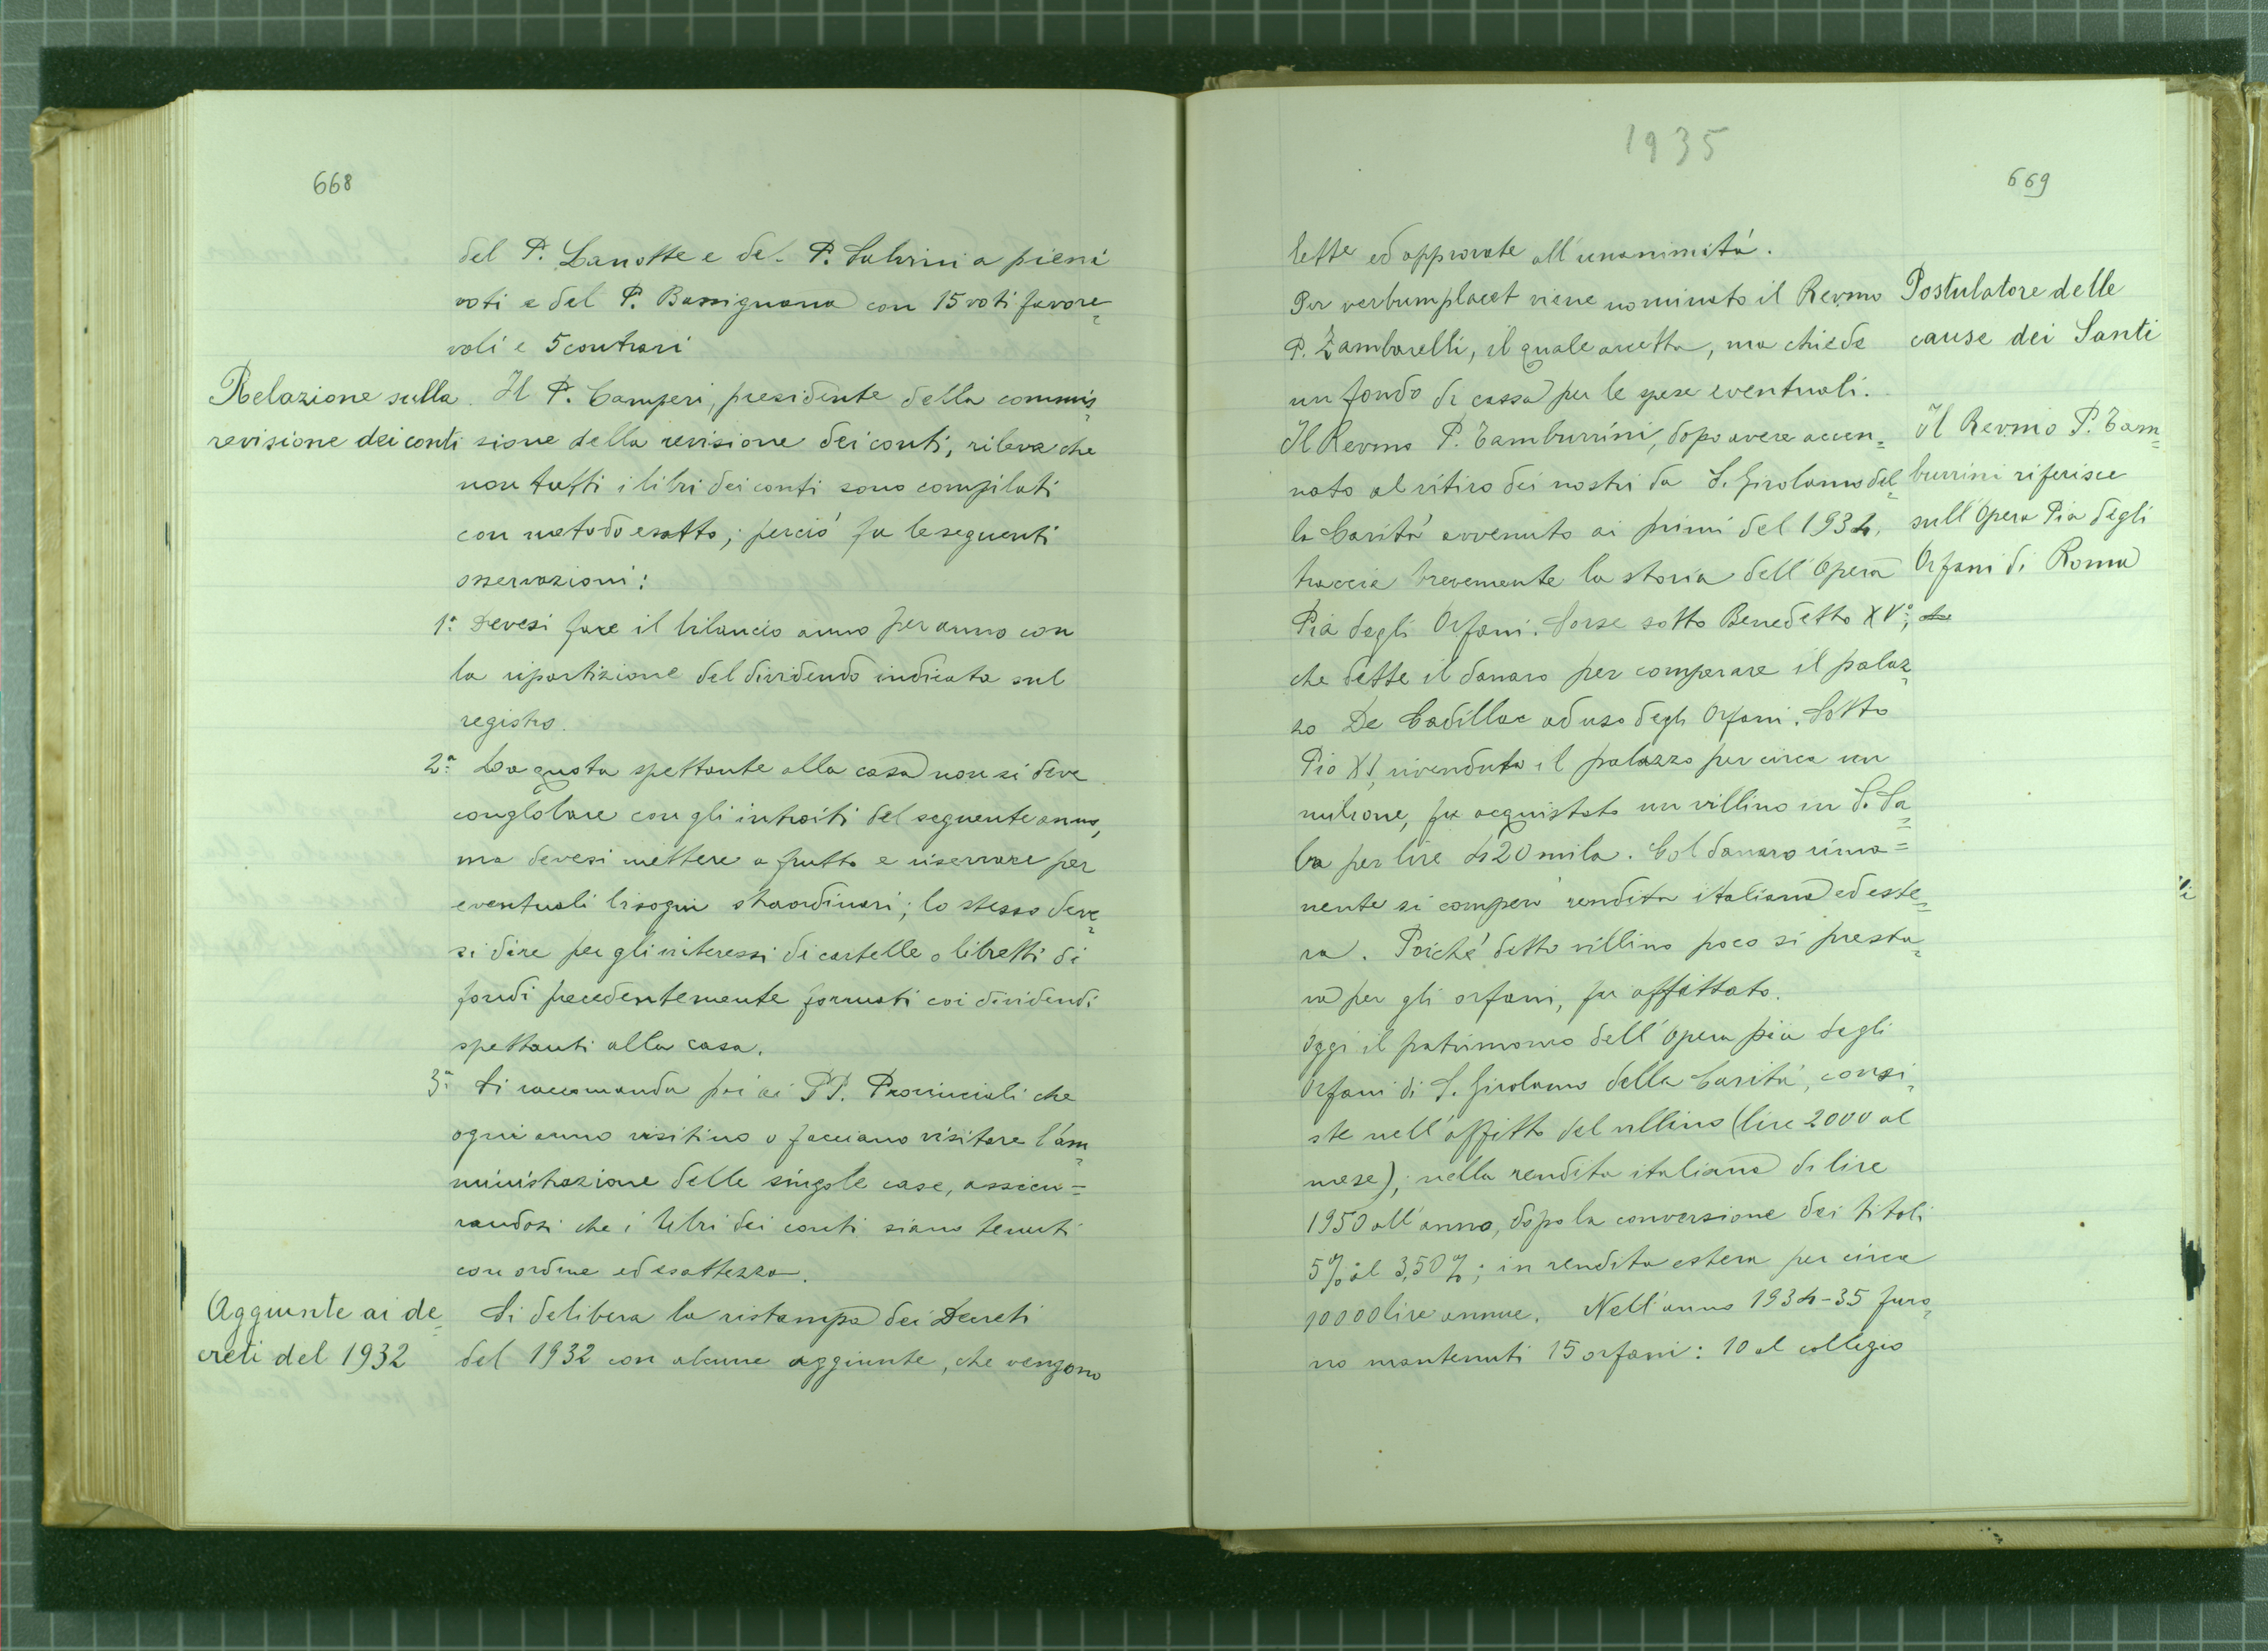 668
del P. Lanotte e del P. Salvini a pieni
voti e del P. Bassignana con 15 voti favore=
voli e 5 contrari
Relazione sulla
revisione dei conti
Il P. Camperi, presidente della commis=
sione della revisione dei conti, rileva che
non tutti i libri dei conti sono compilati
con metodo esatto; perciò fa le seguenti
osservazioni:
1ª Devesi fare il bilancio anno per anno con
la ripartizione del dividendo indicata sul
registro.
2ª La quota spettante alla casa non si deve
conglobare con gli introiti del seguente anno,
ma devesi mettere a frutto e riservare per
eventuali bisogni straordinari; lo stesso deve=
si dire per gli interessi di cartelle o libretti di
fondi precedentemente formati coi dividendi
spettanti alla casa.
3ª Si raccomanda poi ai PP. Provinciali che
ogni anno visitino o facciano visitare l'am=
ministrazione delle singole case, assicu=
randosi che i libri dei conti siano tenuti
con ordine ed esattezza.
Aggiunte ai de=
creti del 1932
Si delibera la ristampa dei Decreti
del 1932 con alcune aggiunte, che vengono
1935
669
lette ed approvate all'unanimità.
Per verbum placet viene nominato il Revmo
P. Zambarelli, il quale accetta, ma chiede
un fondo di cassa per le spese eventuali.
Postulatore delle
cause dei Santi
Il Revmo P. Tamburrini, dopo avere accen=
nato al ritiro dei nostri da S. Girolamo del=
la Carità avvenuto ai primi del 1934,
traccia brevemente la storia dell'Opera
Pia degli Orfani. Sorse sotto Benedetto XVº,
che dette il danaro per comperare il palaz=
zo De Cadillac ad uso degli Orfani. Sotto
Pio XI, rivenduto il palazzo per circa un
milione, fu acquistato un villino in S. Sa=
ba per lire 420 mila. Col danaro rima=
nente si comperò rendita italiana ed este=
ra. Poiché detto villino poco si presta=
va per gli orfani, fu affittato.
Oggi il patrimonio dell'Opera pia degli
Orfani di S. Girolamo della Carità, consi=
ste nell'affitto del villino (lire 2000 al
mese); nella rendita italiana di lire
1950 all'anno, dopo la conversione dei titoli
5% al 3,50%; in rendita estera per circa
10000 lire annue. Nell'anno 1934-35 furo=
no mantenuti 15 orfani: 10 al collegio
Il Revmo P. Tam=
burrini riferisce
sull'Opera Pia degli
Orfani di Roma